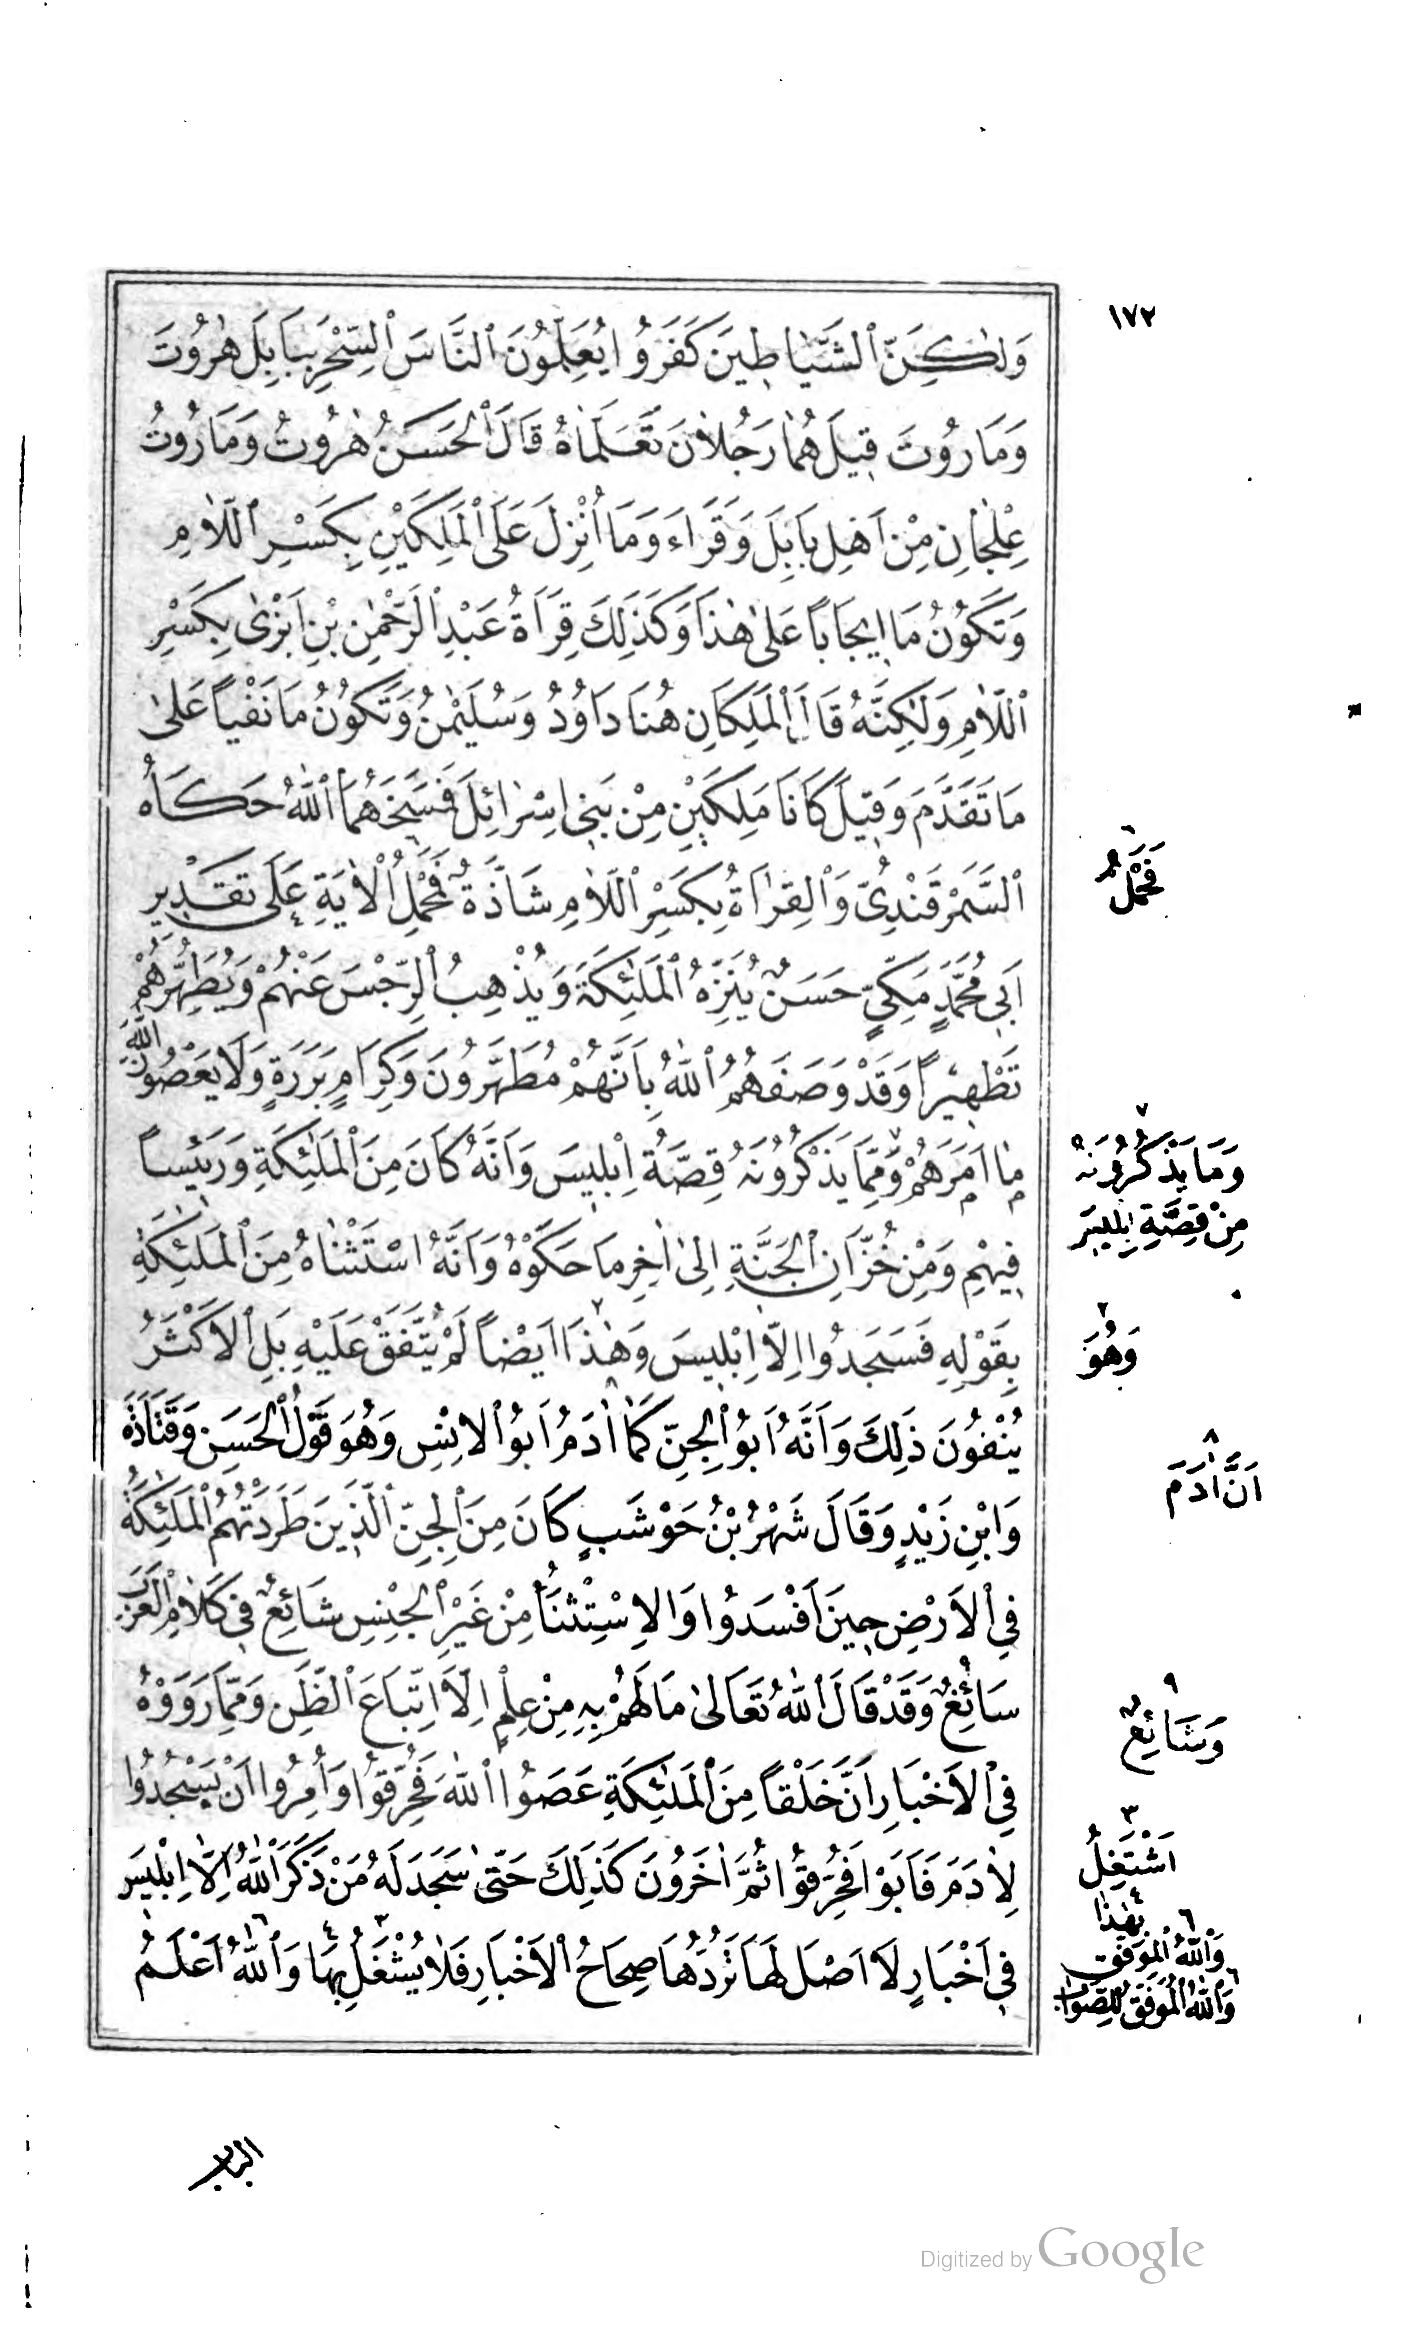 ١٧٢
وَلٰكِنَّ ٱلشَّيَاطِينَ كَفَرُوا يُعَلِّمُونَ ٱلنَّاسَ ٱلسِّحْرَ بِبَابِلَ هٰرُوتَ
وَمَارُوتَ قِيلَ هُمَا رَجُلَانِ تَعَلَّمَاهُ قَالَ ٱلْحَسَنُ هٰرُوتُ وَمَارُوتُ
عِلْجَانِ مِنْ اَهْلِ بَابِلَ وَقَرَاَ وَمَا اُنْزِلَ عَلَى ٱلْمَلِكَيْنِ بِكَسْرِ ٱللَّامِ
وَتَكُونُ مَا اِيجَابًا عَلٰى هٰذَا وَكَذٰلِكَ قِرَاَةُ عَبْدِ ٱلرَّحْمٰنِ بْنِ اَبْزٰى بِكَسْرِ
ٱللَّامِ وَلٰكِنَّهُ قَالَ ٱلْمَلِكَانِ هُنَا دَاوُدُ وَسُلَيْمٰنُ وَتَكُونُ مَا نَفْيًا عَلٰى
مَا تَقَدَّمَ وَقِيلَ كَانَا مَلِكَيْنِ مِنْ بَنِي اِسْرَائِلَ فَمَسَخَهُمَا ٱللّٰهُ حَكَاهُ
ٱلسَّمَرْقَنْدِيُّ وَٱلْقِرَاَةُ بِكَسْرِ ٱللَّامِ شَاذَّةٌ فَمَحْمِلُ ٱلْاٰيَةِ عَلَى تَقْدِيرِ
اَبِي مُحَمَّدٍ مَكِّيٍّ حَسَنٌ يُنَزِّهُ ٱلْمَلٰئِكَةَ وَيُذْهِبُ ٱلرِّجْسَ عَنْهُمْ وَيُطَهِّرُهُمْ
تَطْهِيرًا وَقَدْ وَصَفَهُمُ ٱللّٰهُ بِاَنَّهُمْ مُطَهَّرُونَ وَكِرَامٍ بَرَرَةٍ وَلَا يَعْصُونَ ٱللّٰهَ
مَا اَمَرَهُمْ وَمِمَّا يَذْكُرُونَهُ قِصَّةُ اِبْلِيسَ وَاَنَّهُ كَانَ مِنَ ٱلْمَلٰئِكَةِ وَرَئِيسًا
فِيهِمْ وَمِنْ خُزَّانِ ٱلْجَنَّةِ اِلٰى اٰخِرِ مَا حَكَوْهُ وَاَنَّهُ اسْتَثْنَاهُ مِنَ ٱلْمَلٰئِكَةِ
بِقَوْلِهِ فَسَجَدُوا اِلَّا اِبْلِيسَ وَهٰذَا اَيْضًا لَمْ يُتَّفَقْ عَلَيْهِ بَلِ ٱلْاَكْثَرُ
يُنْفُونَ ذٰلِكَ وَاَنَّهُ اَبُو ٱلْجِنِّ كَمَا اٰدَمُ اَبُو ٱلْاِنْسِ وَهُوَ قَوْلُ ٱلْحَسَنِ وَقَتَادَةَ
وَابْنِ زَيْدٍ وَقَالَ شَهْرُ بْنُ حَوْشَبٍ كَانَ مِنَ ٱلْجِنِّ ٱلَّذِينَ طَرَدَتْهُمُ ٱلْمَلٰئِكَةُ
فِي ٱلْاَرْضِ حِينَ اَفْسَدُوا وَالْاِسْتِثْنَاءُ مِنْ غَيْرِ ٱلْجِنْسِ شَائِعٌ فِي كَلَامِ ٱلْعَرَبِ
سَائِغٌ وَقَدْ قَالَ ٱللّٰهُ تَعَالٰى مَا لَهُمْ بِهِ مِنْ عِلْمٍ اِلَّا اتِّبَاعَ ٱلظَّنِّ وَمِمَّا رَوَوْهُ
فِي ٱلْاَخْبَارِ اَنَّ خَلْقًا مِنَ ٱلْمَلٰئِكَةِ عَصَوُا ٱللّٰهَ فَحُرِّقُوا وَاُمِرُوا اَنْ يَسْجُدُوا
لِاٰدَمَ فَاَبَوْا فَحُرِّقُوا ثُمَّ اٰخَرُونَ كَذٰلِكَ حَتّٰى سَجَدَ لَهُ مَنْ ذَكَرَ ٱللّٰهُ اِلَّا اِبْلِيسَ
فِي اَخْبَارٍ لَا اَصْلَ لَهَا تَرُدُّهَا صِحَاحُ ٱلْاَخْبَارِ فَلَا يُشْتَغَلُ بِهَا وَٱللّٰهُ اَعْلَمُ
٦
فَحَمْلُ
٧
وَمَا يَذْكُرُونَهُ
مِنْ قِصَّةِ اِبْلِيسَ
٢
وَهُوَ
٨
اَنَّ اٰدَمَ
٩
وَشَائِعٌ
٣
اَشْتَغِلُ
٤
بِهٰذَا
٦
وَٱللّٰهُ ٱلْمُوَفِّقُ
٦
وَٱللّٰهُ ٱلْمُوَفِّقُ لِلصَّوَابِ
الباب
Digitized by Google